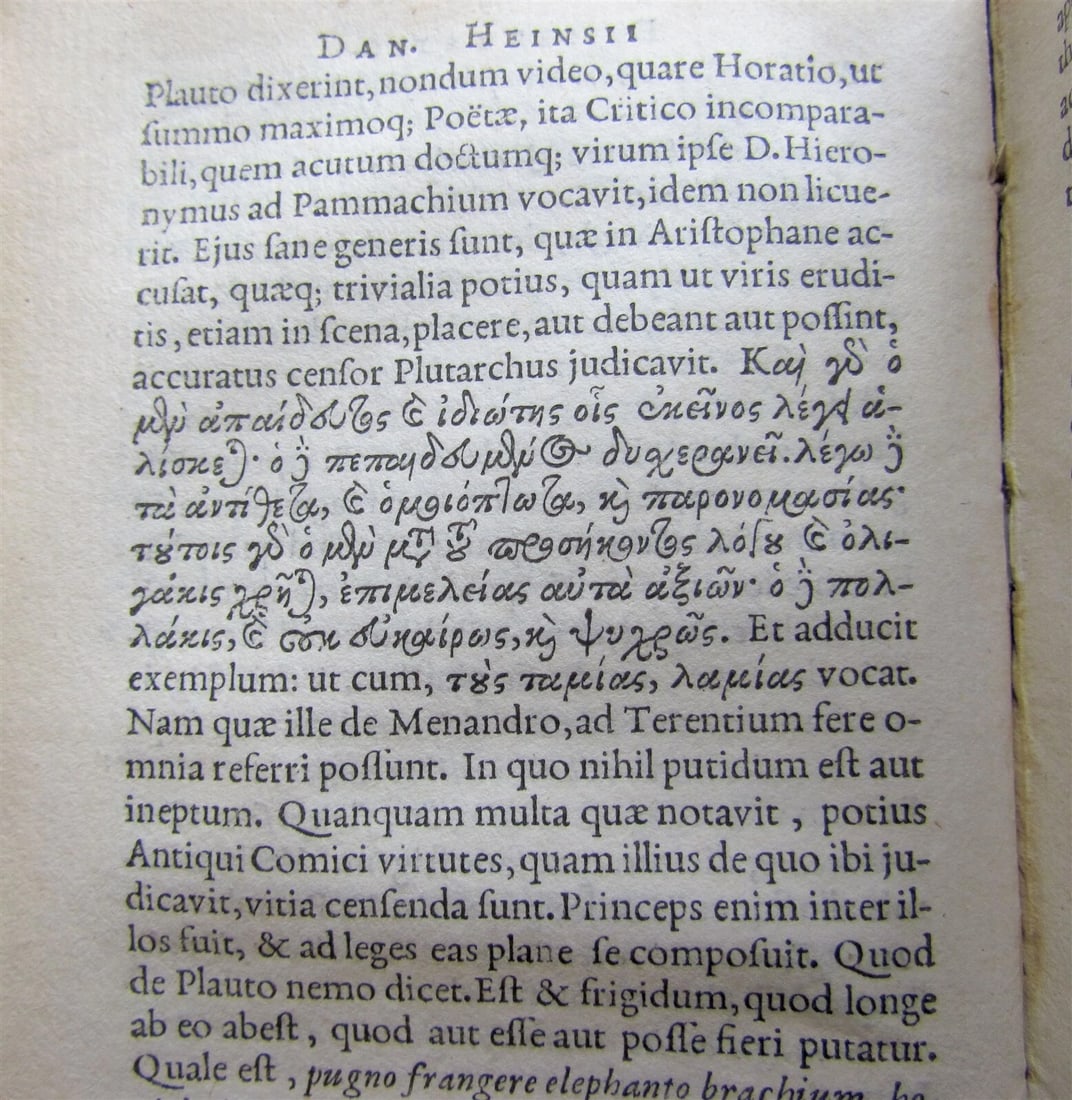 DAN. HEINSII
Plauto dixerint, nondum video, quare Horatio, ut
ſummo maximoq; Poëtæ, ita Critico incompara-
bili, quem acutum doctumq; virum ipſe D. Hiero-
nymus ad Pammachium vocavit, idem non licue-
rit. Ejus ſane generis ſunt, quæ in Ariſtophane ac-
cuſat, quæq; trivialia potius, quam ut viris erudi-
tis, etiam in ſcena, placere, aut debeant aut poſſint,
accuratus cenſor Plutarchus judicavit. Καὶ γὰρ ὁ
μὲν ἀπαίδευτος καὶ ἰδιώτης οἷς ἐκεῖνος λέγει ἁ-
λίσκεται· ὁ δὲ πεπαιδευμένος δυχερανεῖ. λέγω δὲ
τὰ ἀντίθετα, καὶ ὁμοιόπτωτα, καὶ παρονομασίας·
τούτοις γὰρ ὁ μὲν μετὰ τοῦ προσήκοντος λόγου καὶ ὀλι-
γάκις χρῆται, ἐπιμελείας αὐτὰ ἀξιῶν· ὁ δὲ πολ-
λάκις, καὶ οὐκ εὐκαίρως, καὶ ψυχρῶς. Et adducit
exemplum: ut cum, τοὺς ταμίας, λαμίας vocat.
Nam quæ ille de Menandro, ad Terentium fere o-
mnia referri poſſunt. In quo nihil putidum eſt aut
ineptum. Quanquam multa quæ notavit, potius
Antiqui Comici virtutes, quam illius de quo ibi ju-
dicavit, vitia cenſenda ſunt. Princeps enim inter il-
los fuit, & ad leges eas plane ſe compoſuit. Quod
de Plauto nemo dicet. Eſt & frigidum, quod longe
ab eo abeſt, quod aut eſſe aut poſſe fieri putatur.
Quale eſt, pugno frangere elephanto brachium,